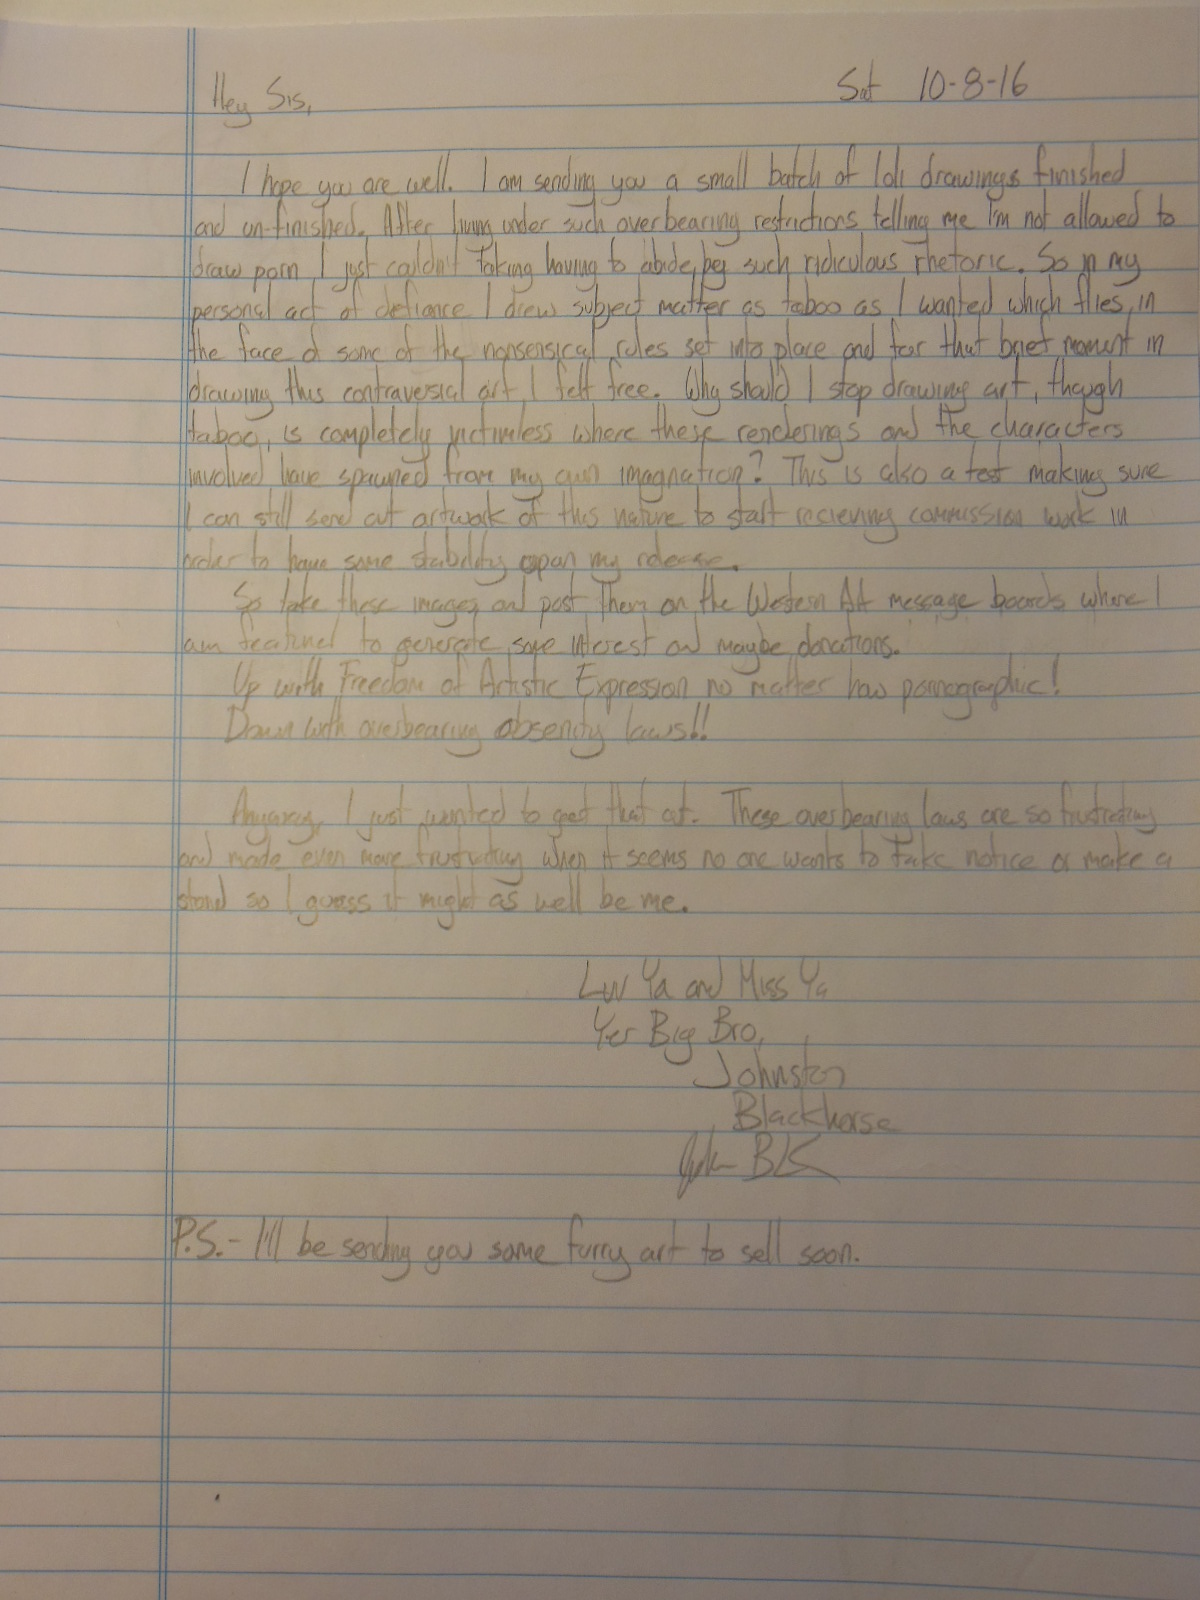 Hey Sis,
Sat 10-8-16
I hope you are well. I am sending you a small batch of loli drawings finished
and un-finished. After living under such overbearing restrictions telling me I'm not allowed to
draw porn I just couldn't taking having to abide by such ridiculous rhetoric. So in my
personal act of defiance I drew subject matter as taboo as I wanted which flies in
the face of some of the nonsensical rules set into place and for that brief moment in
drawing this contraversial art I felt free. Why should I stop drawing art, though
taboo, is completely victimless where these renderings and the characters
involved have spawned from my own imagnation? This is also a test making sure
I can still send out artwork of this nature to start recieving commission work in
order to have some stability upon my release.
So take these images and post them on the Western Art message boards where I
am featured to generate some interest and maybe donations.
Up with Freedom of Artistic Expression no matter how pornographic!
Down with overbearing obsenity laws!!
Anyways, I just wanted to get that out. These overbearing laws are so frustrating
and made even more frustrating when it seems no one wants to take notice or make a
stand so I guess it might as well be me.
Luv Ya and Miss Ya
Yer Big Bro,
Johnston
Blackhorse
P.S.- I'll be sending you some furry art to sell soon.